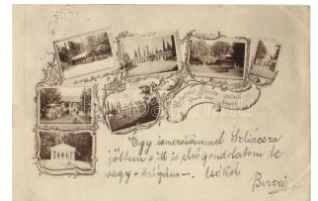 Egy ismerősömmel Szliácsra
jöttem s itt is első gondolatom te
vagy - drágám -. Csókol
Berczi